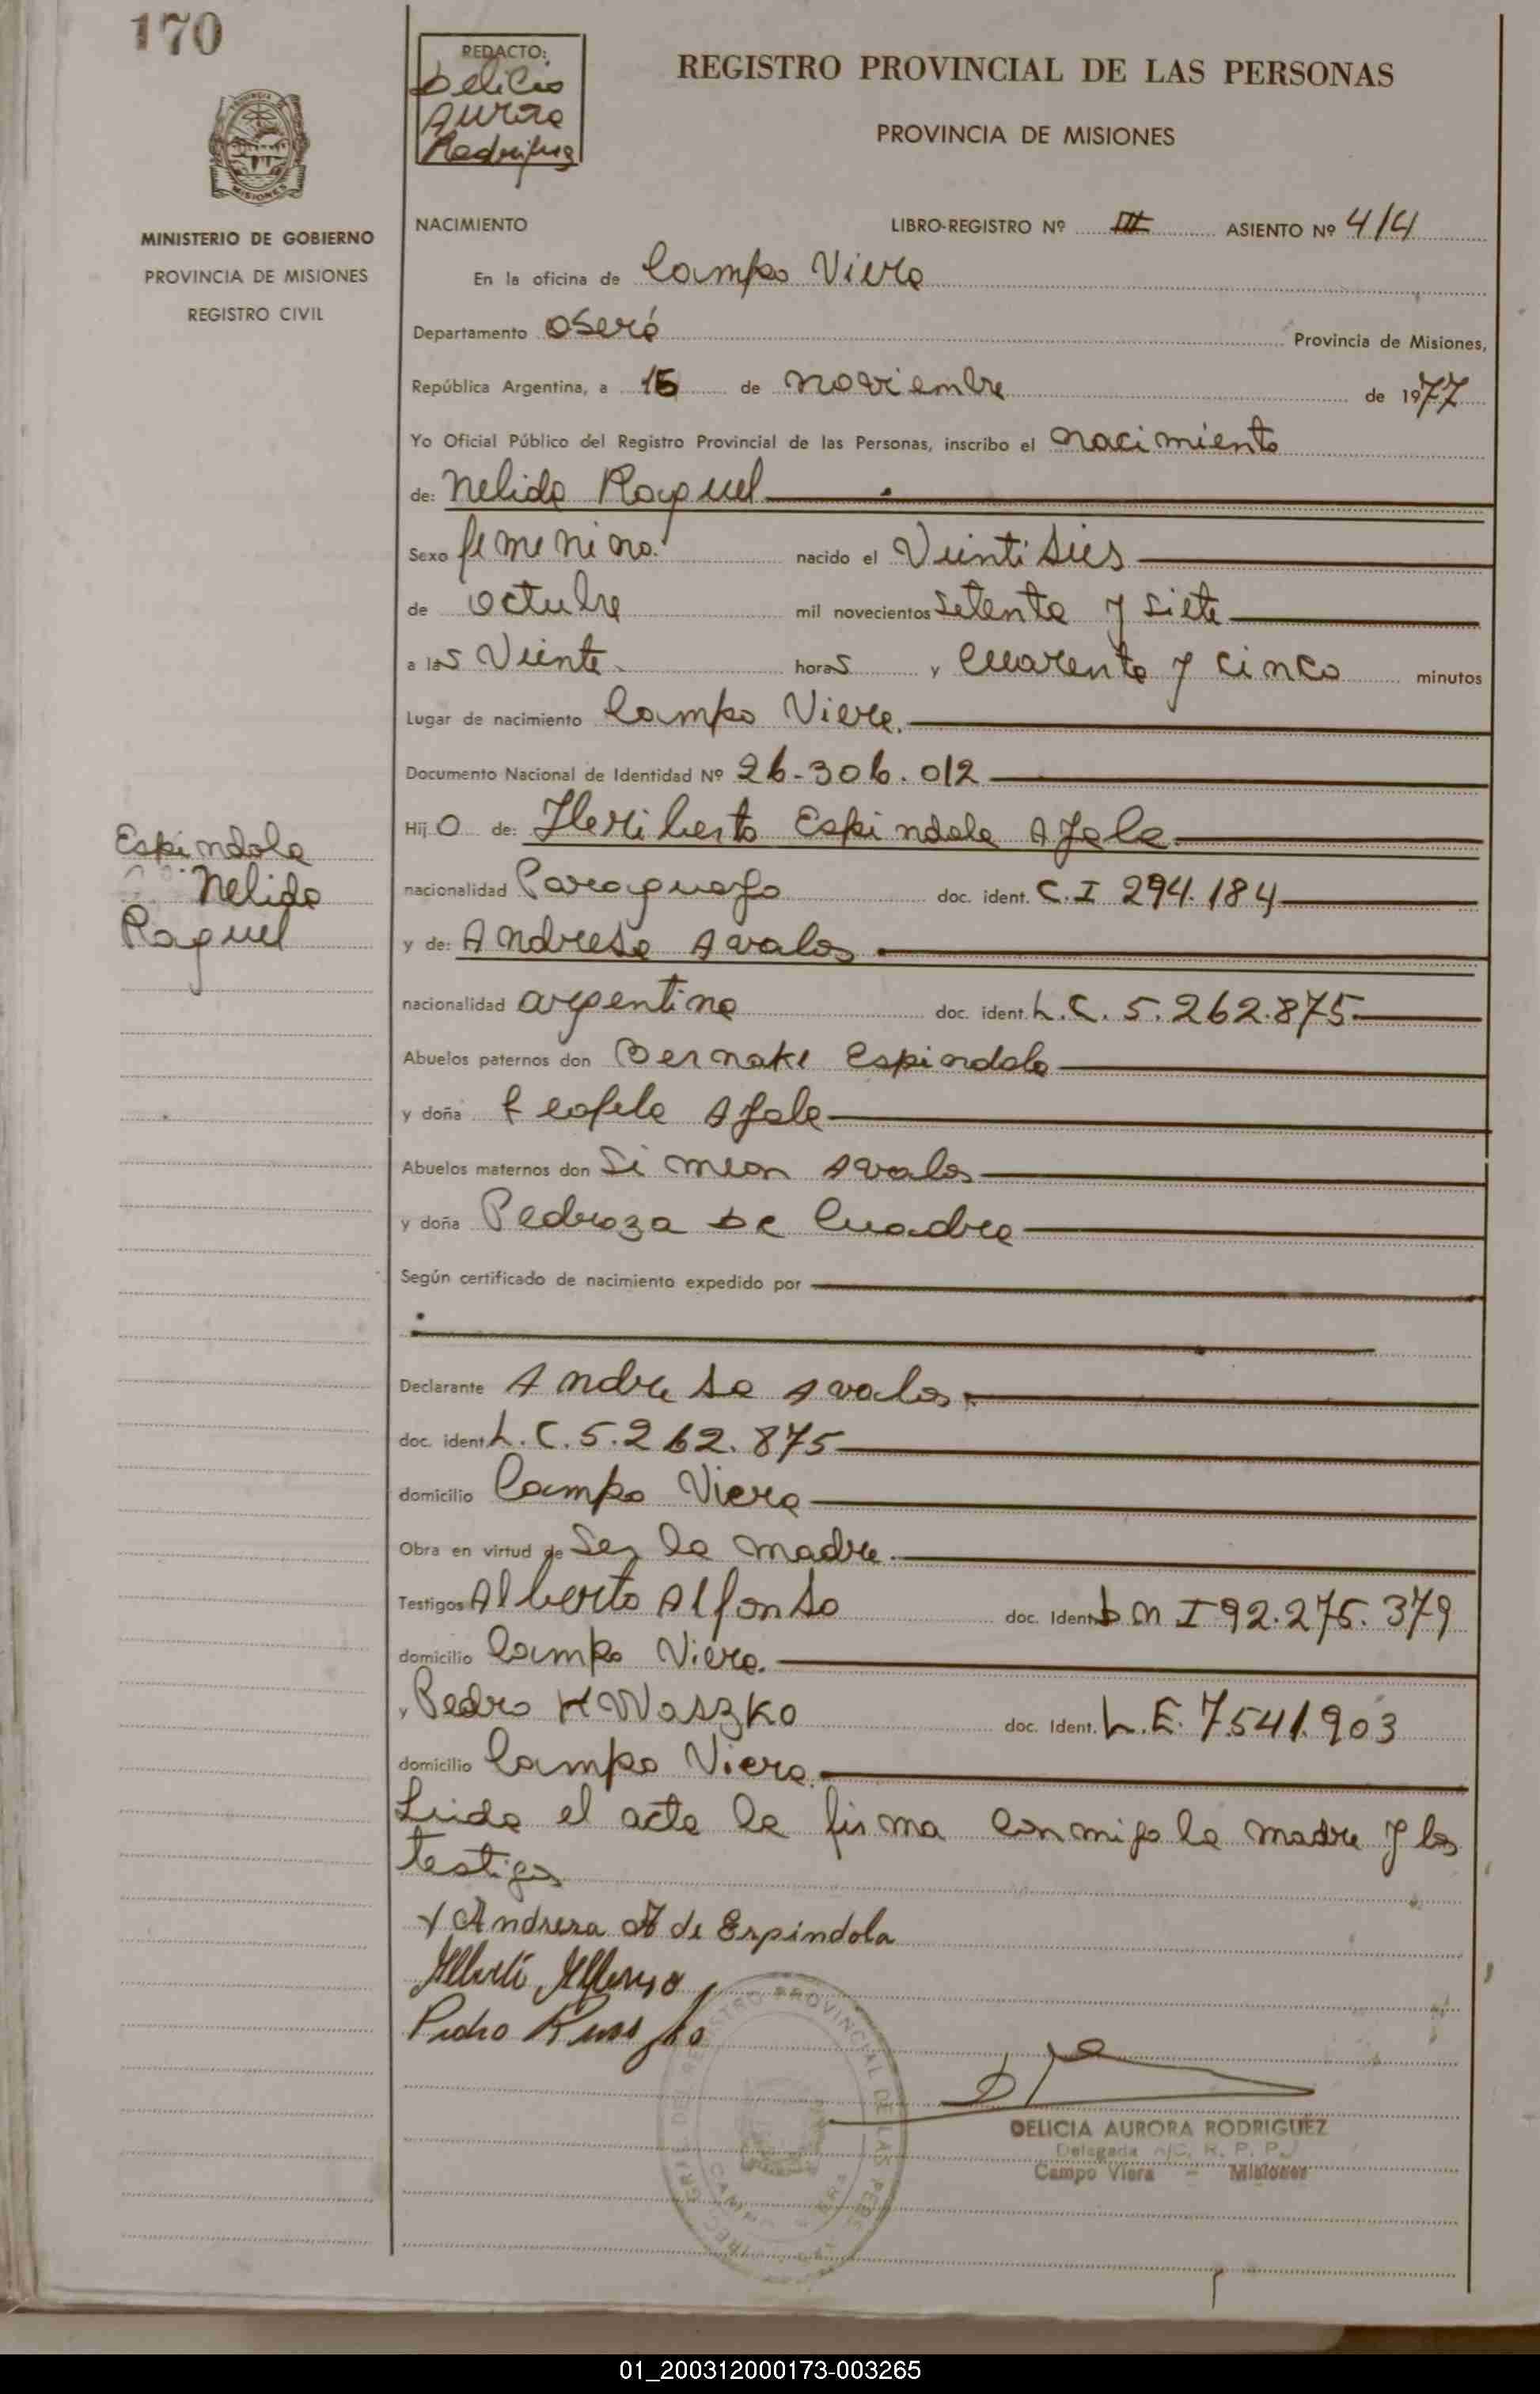 170
REDACTO:
Delicia
Aurora
Rodriguez
REGISTRO PROVINCIAL DE LAS PERSONAS
PROVINCIA DE MISIONES
MISIONES
MINISTERIO DE GOBIERNO
PROVINCIA DE MISIONES
REGISTRO CIVIL
NACIMIENTO LIBRO-REGISTRO Nº III ASIENTO Nº 414
En la oficina de Campo Viera
Departamento Oberá Provincia de Misiones,
República Argentina, a 15 de noviembre de 1977
Yo Oficial Público del Registro Provincial de las Personas, inscribo el nacimiento
de: Nelida Raquel
Sexo femenino. nacido el Veintiseis
de octubre mil novecientos setenta y siete
a las Veinte horas y Cuarenta y cinco minutos
Lugar de nacimiento Campo Viera.
Documento Nacional de Identidad Nº 26-306.012
Hijo de: Heriberto Espindola Ayala
nacionalidad Paraguaya doc. ident. C.I 294.184
y de: Andresa Avalos
nacionalidad argentina doc. ident. L.C. 5.262.875
Abuelos paternos don Espindola
y doña Ayala
Abuelos maternos don Simeon Avalos
y doña Pedroza De Cuadra
Según certificado de nacimiento expedido por
Declarante Andresa Avalos
doc. ident. L.C.5.262.875
domicilio Campo Viera
Obra en virtud de Ser la madre.
Testigos Alberto Alfonso doc. Ident. D N I 92.275.379
domicilio Campo Viera.
y Pedro KWaszko doc. Ident. L.E. 7.541.903
domicilio Campo Viera.
Leida el acta la firma conmigo la madre y los
testigos
Espindola
Nelida
Raquel
Andresa A de Espindola
Alberto Alfonso
Pedro
DELICIA AURORA RODRIGUEZ
Delegada A/C. R. P. P.
Campo Viera - Misiones
REGISTRO PROVINCIAL DE LAS PERS
01_200312000173-003265